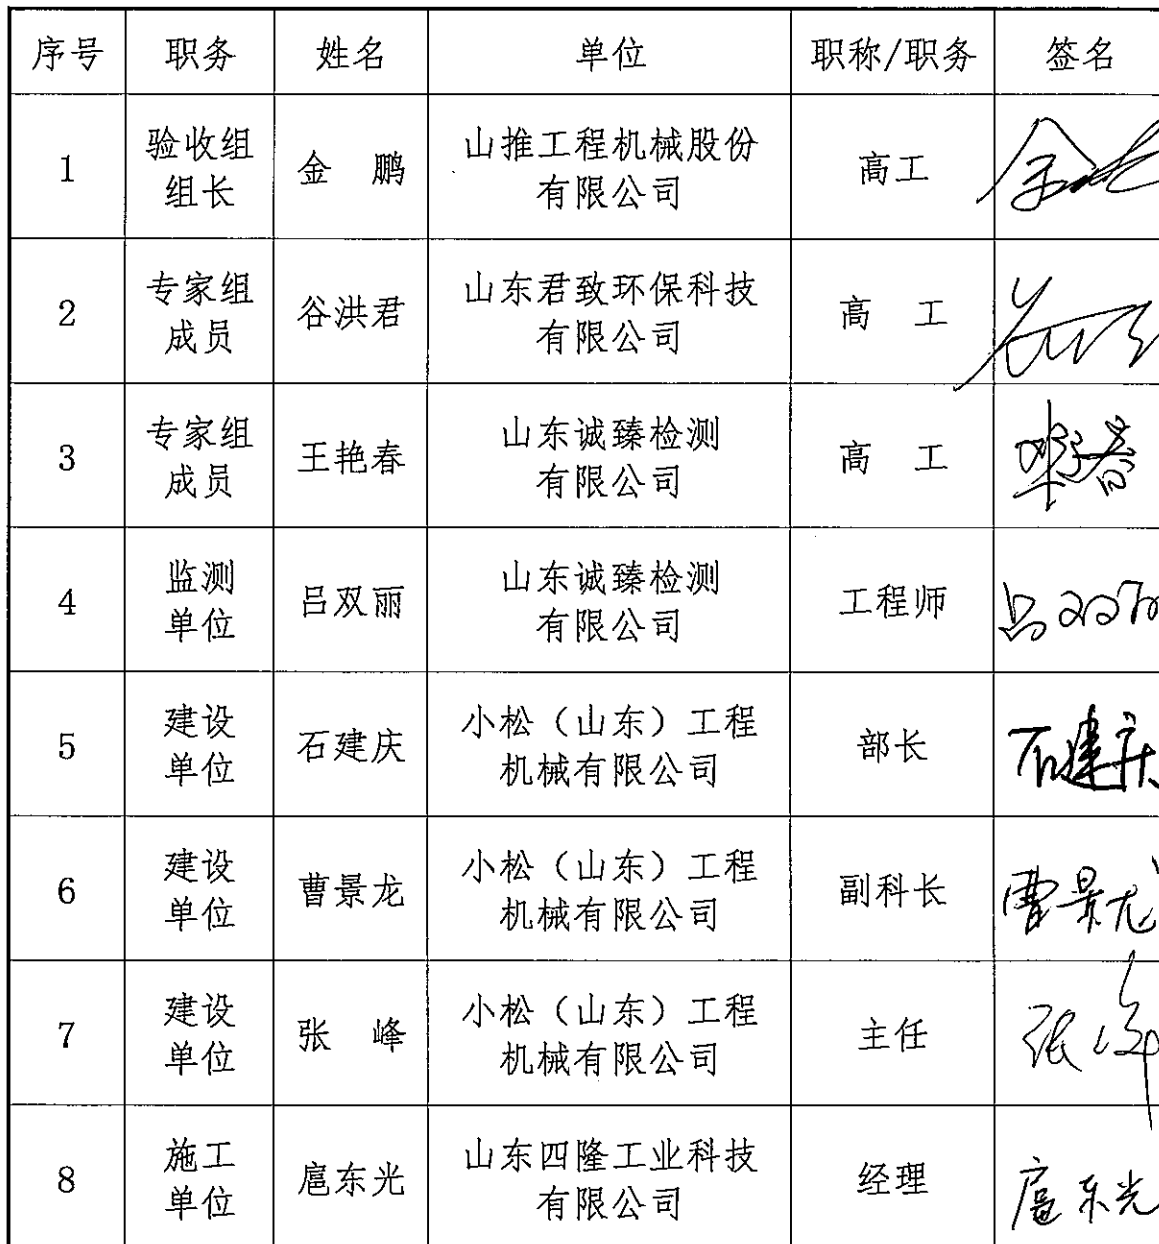 序号 职务 姓名 单位 职称/职务 签名
1 验收组组长 金 鹏 山推工程机械股份有限公司 高工
2 专家组成员 谷洪君 山东君致环保科技有限公司 高 工
3 专家组成员 王艳春 山东诚臻检测有限公司 高 工
4 监测单位 吕双丽 山东诚臻检测有限公司 工程师 吕双丽
5 建设单位 石建庆 小松（山东）工程机械有限公司 部长 石建庆
6 建设单位 曹景龙 小松（山东）工程机械有限公司 副科长 曹景龙
7 建设单位 张 峰 小松（山东）工程机械有限公司 主任 张峰
8 施工单位 扈东光 山东四隆工业科技有限公司 经理 扈东光